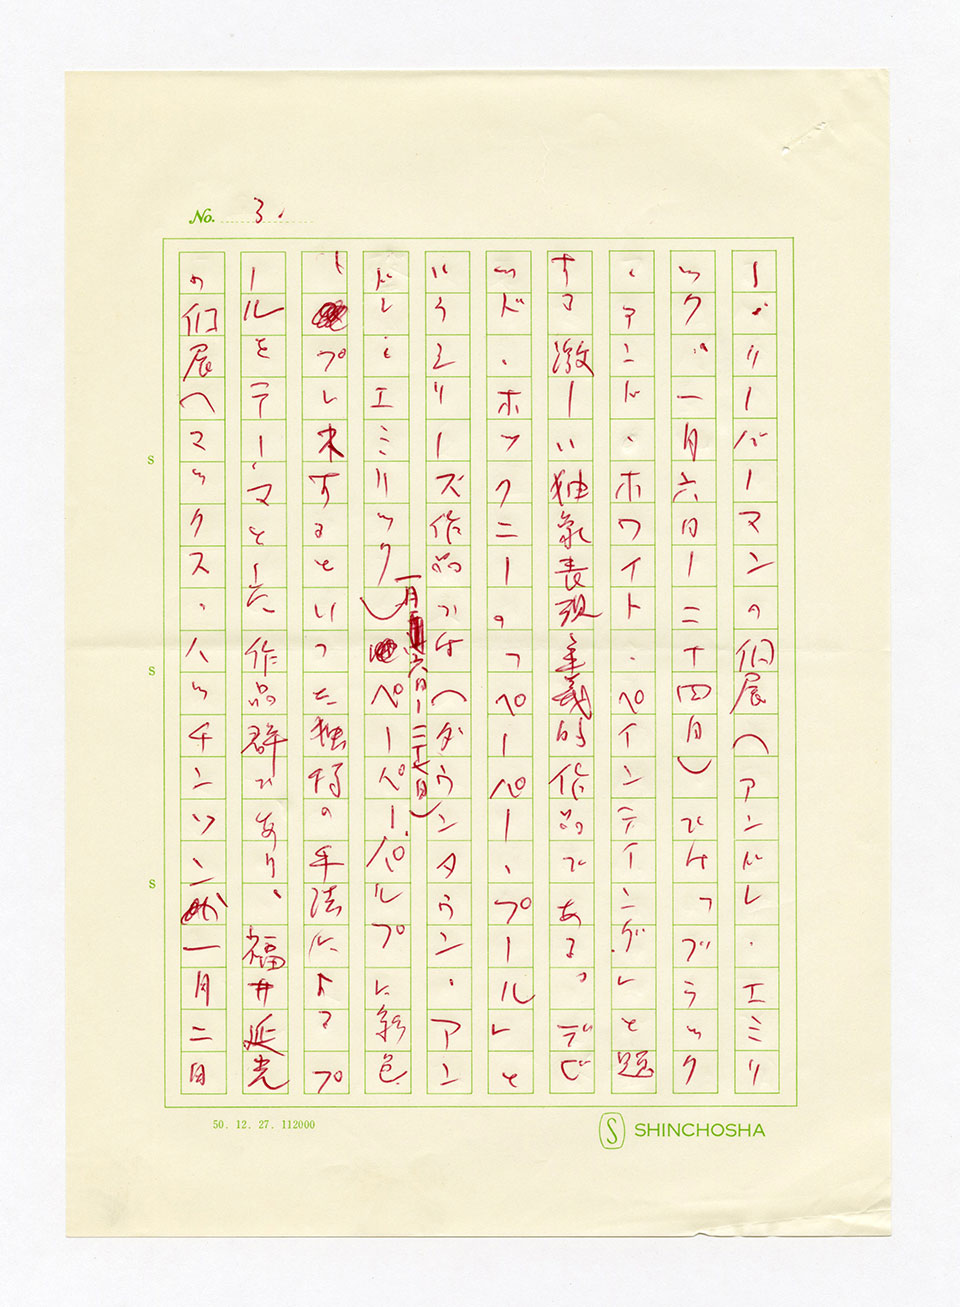 No. 3.
ー・リーバーマンの個展（アンドレ・エミリ
ック・一月六日ー二十四日）では「ブラック
・アンド・ホワイト・ペインティング」と題
する激しい抽象表現主義的作品である。デビ
ッド・ホックニーの「ペーパー・プール」と
いうシリーズ作品が（ダウンタウン・アン
ドレ・エミリック）ペーパーパルプに彩色
一月六日ー二十七日）
しプレスするといった独特の手法によるプ
ールをテーマとした作品群であり、福井延光
の個展へマックス・ハッチンソン一月二日
S
S
S
50. 12. 27. 112000
S SHINCHOSHA